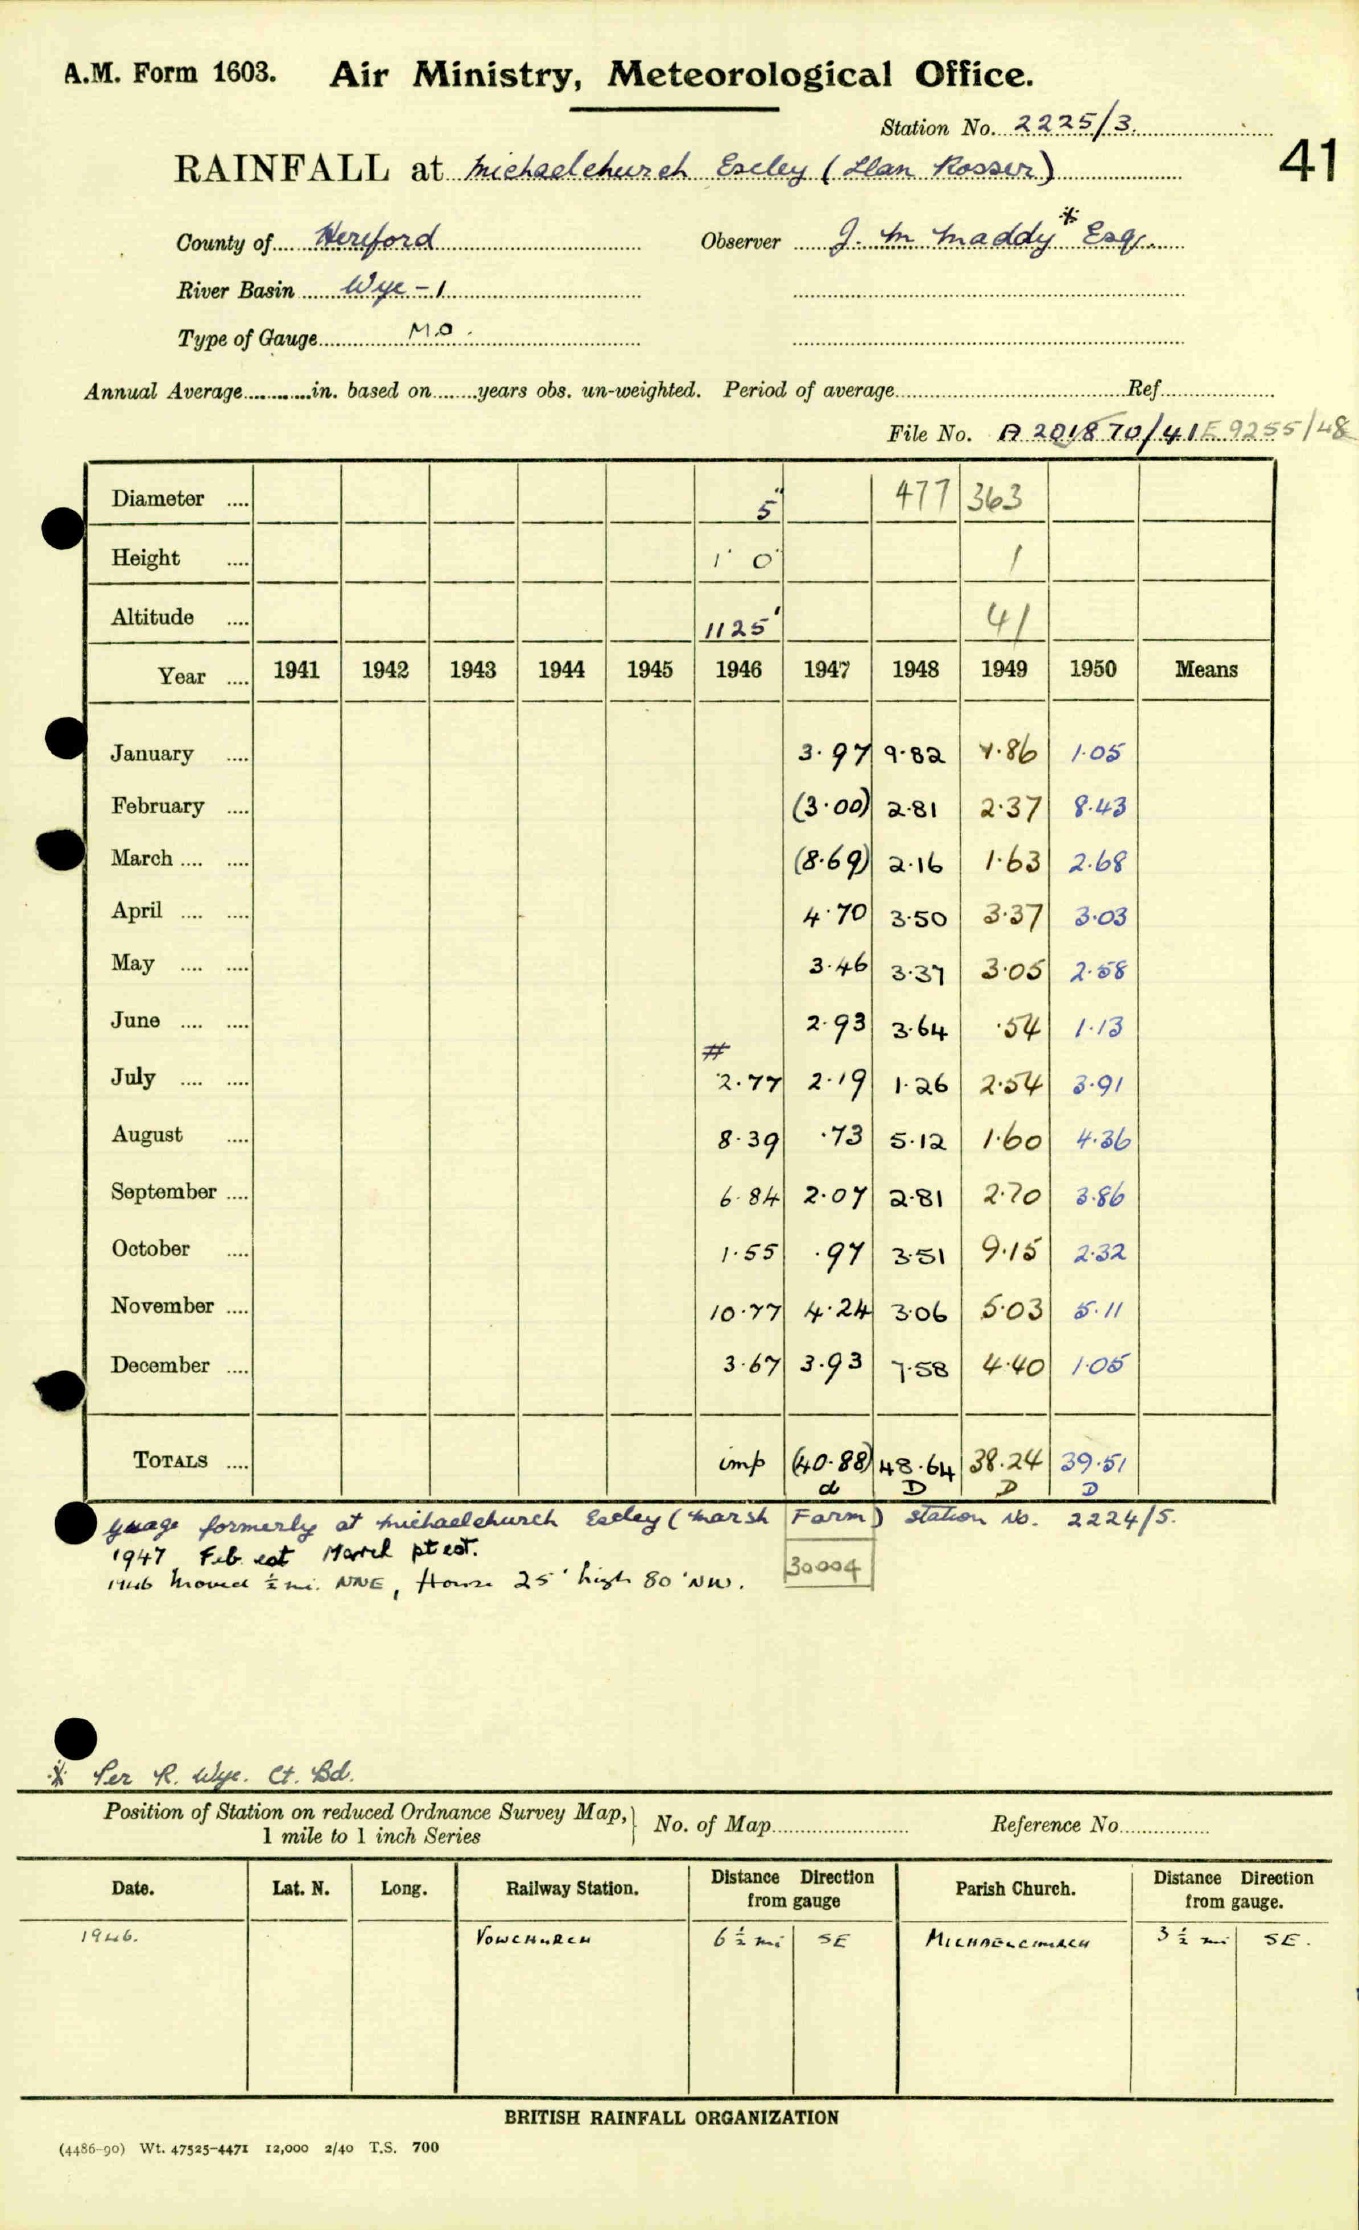 A.M. Form 1603. Air Ministry, Meteorological Office.
Station No. 2225/3.
41
RAINFALL at Michaelchurch Escley (Llan Rosser)
County of Hereford Observer J. M Maddy* Esq.
River Basin Wye - 1
Type of Gauge M.O.
Annual Average............in. based on........years obs. un-weighted. Period of average................Ref................
File No. A 201870/41 E 9255/48
Diameter .... 5" 477 363
Height .... 1' 0" 1
Altitude .... 1125' 41
Year .... 1941 1942 1943 1944 1945 1946 1947 1948 1949 1950 Means
January .... 3.97 9.82 1.86 1.05
February .... (3.00) 2.81 2.37 8.43
March .... .... (8.69) 2.16 1.63 2.68
April .... .... 4.70 3.50 3.37 3.03
May .... .... 3.46 3.37 3.05 2.58
June .... .... 2.93 3.64 .54 1.13
#
July .... .... 2.77 2.19 1.26 2.54 3.91
August .... 8.39 .73 5.12 1.60 4.36
September .... 6.84 2.07 2.81 2.70 3.86
October .... 1.55 .97 3.51 9.15 2.32
November .... 10.77 4.24 3.06 5.03 5.11
December .... 3.67 3.93 7.58 4.40 1.05
TOTALS .... imp (40.88) 48.64 38.24 39.51
d D D D
Guage formerly at Michaelchurch Escley (Marsh Farm) Station No. 2224/5.
1947 Feb. est March pt est.
1946 Moved ½ mi. NNE, House 25' high 80' NW.
30004
* Per R. Wye. Ct. Bd.
Position of Station on reduced Ordnance Survey Map, 1 mile to 1 inch Series } No. of Map................ Reference No................
Date. Lat. N. Long. Railway Station. Distance Direction from gauge Parish Church. Distance Direction from gauge.
1946. VOWCHURCH 6½ mi SE MICHAELCHURCH 3½ mi SE.
BRITISH RAINFALL ORGANIZATION
(4486-90) Wt. 47525-4471 12,000 2/40 T.S. 700